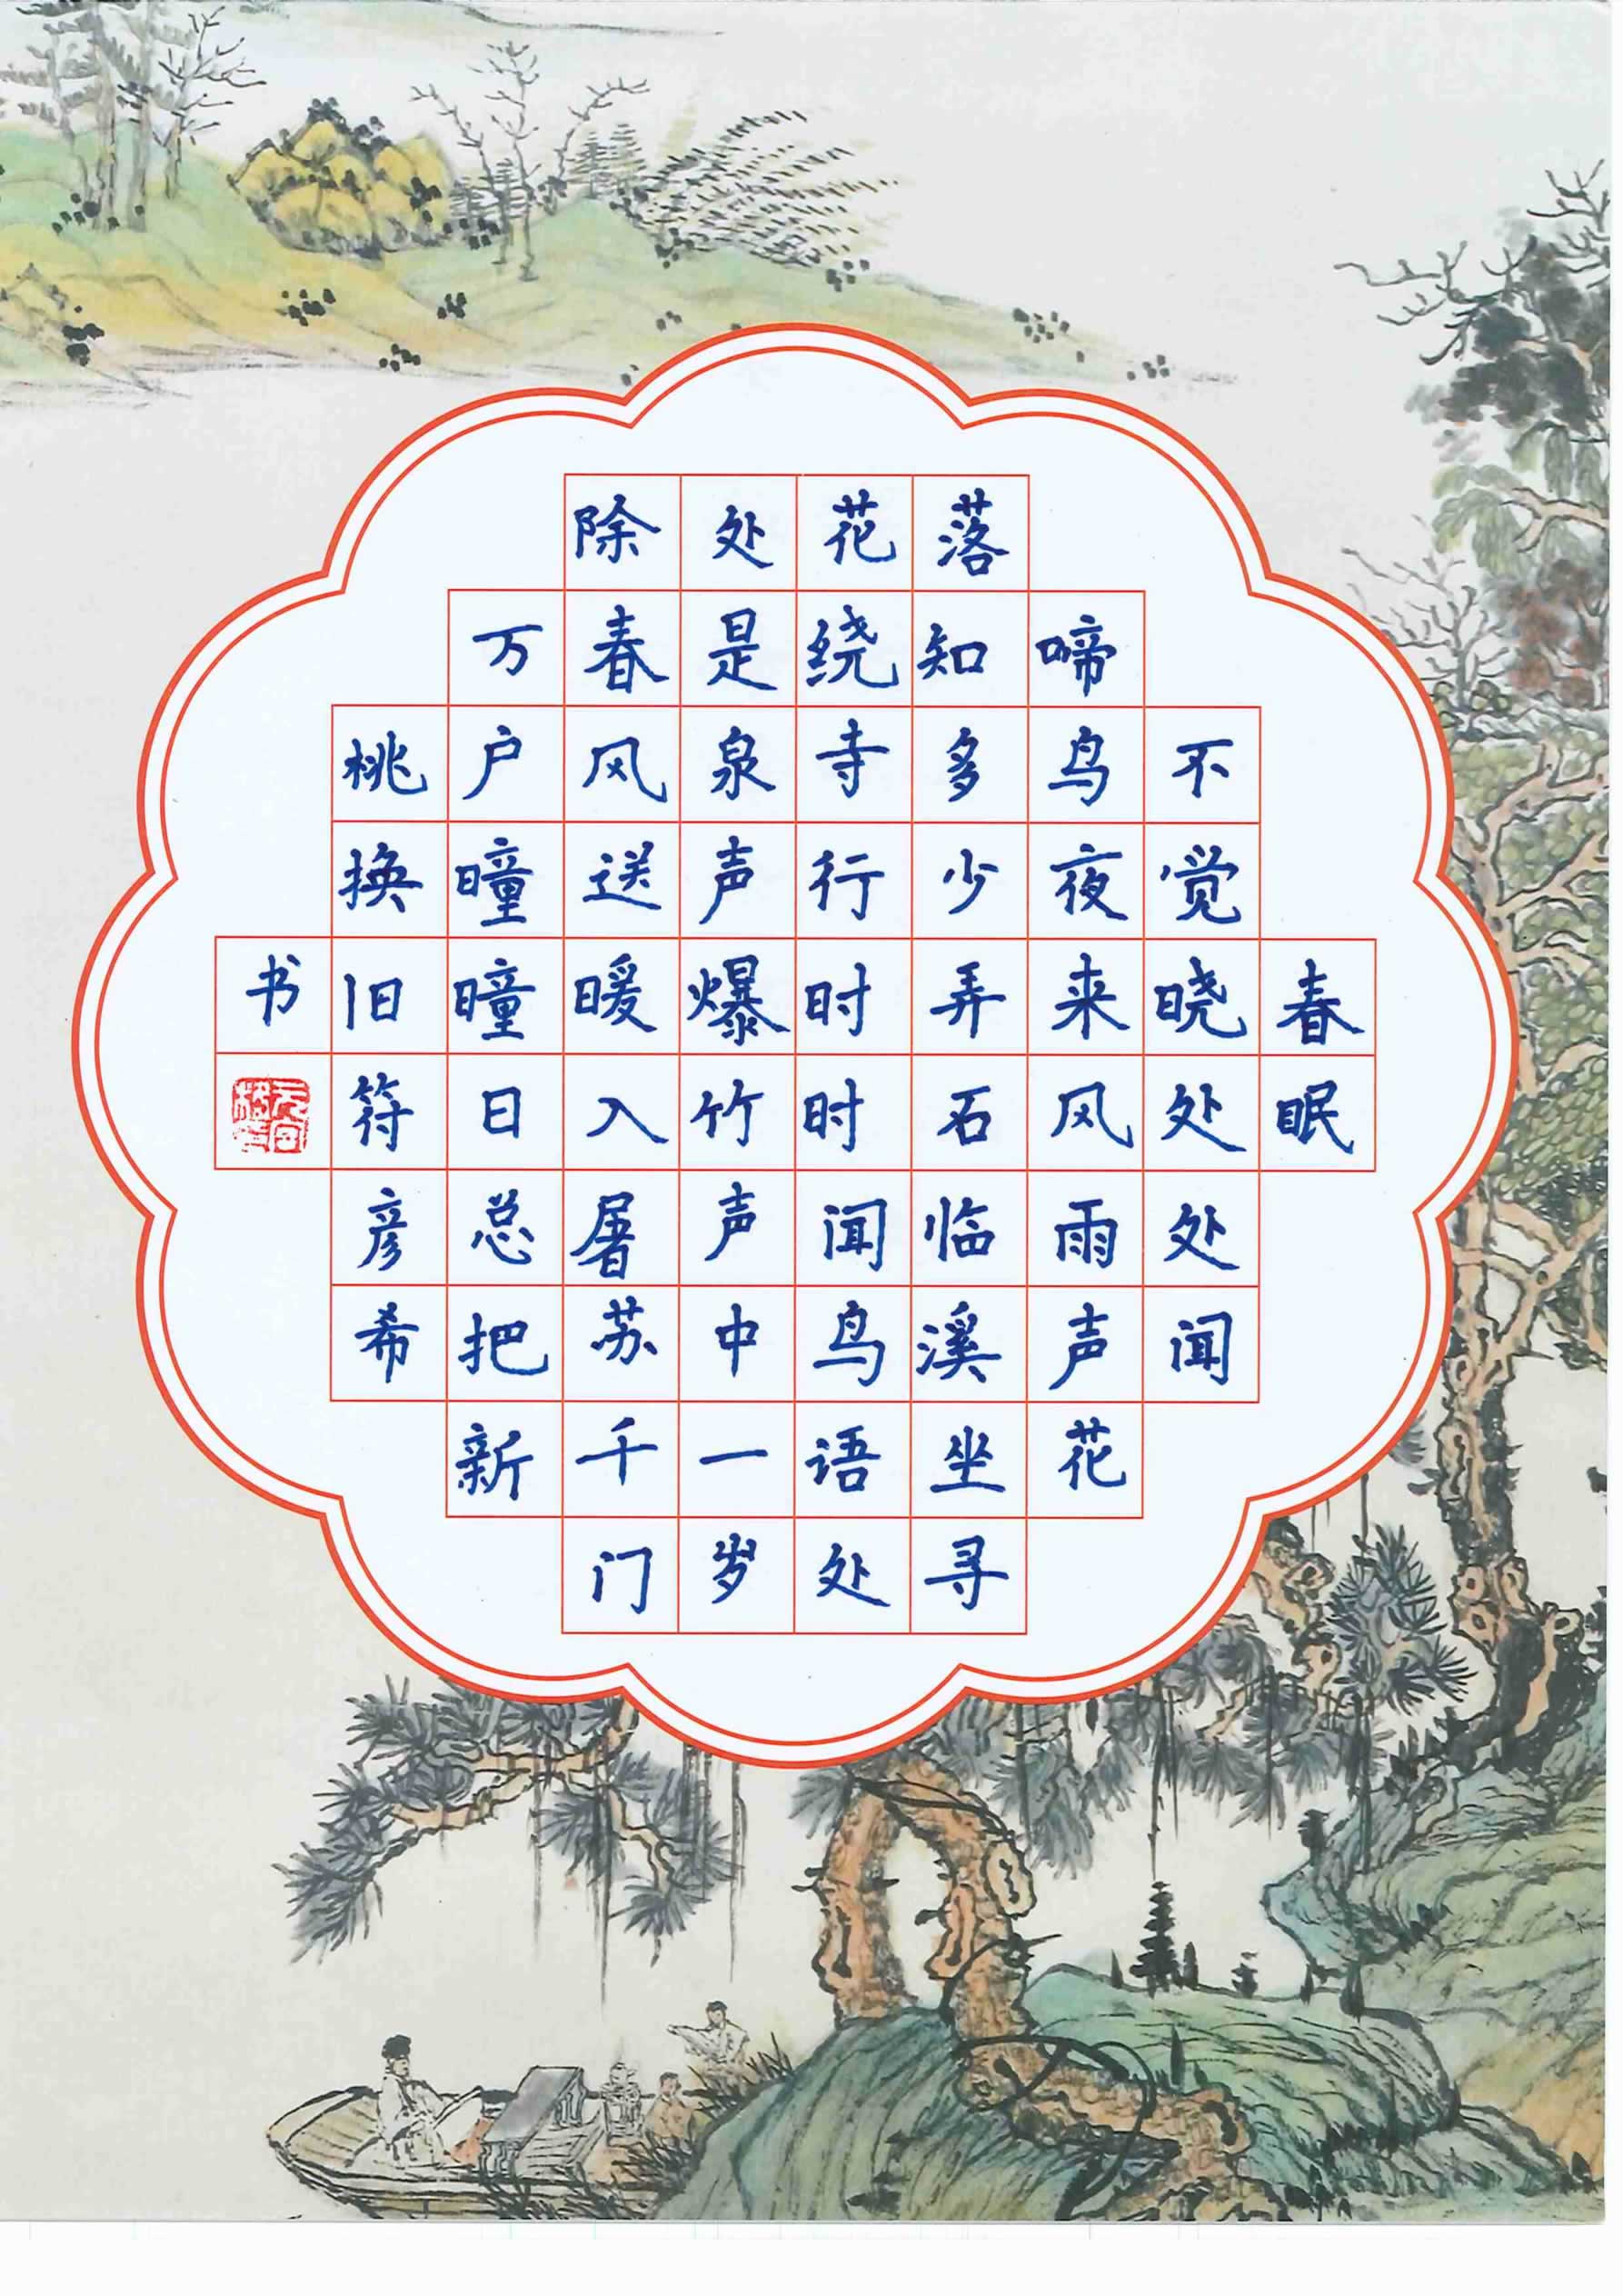 春眠
不觉晓处处闻
啼鸟夜来风雨声花
落知多少弄石临溪坐寻
花绕寺行时时闻鸟语处
处是泉声爆竹声中一岁
除春风送暖入屠苏千门
万户曈曈日总把新
桃换旧符彦希
书